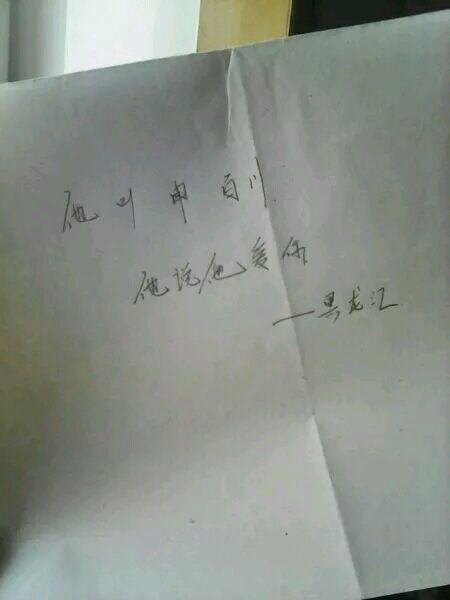 他叫申百川
他说他爱你
—黑龙江